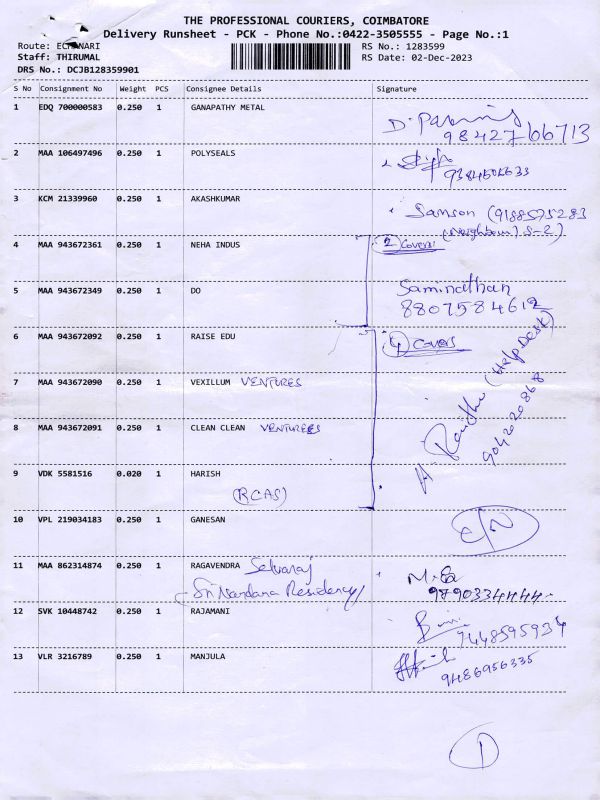 THE PROFESSIONAL COURIERS, COIMBATORE
Delivery Runsheet - PCK - Phone No.:0422-3505555 - Page No.:1
Route: ECHANARI RS No.: 1283599
Staff: THIRUMAL RS Date: 02-Dec-2023
DRS No.: DCJB128359901
S No Consignment No Weight PCS Consignee Details Signature
1 EDQ 700000583 0.250 1 GANAPATHY METAL
2 MAA 106497496 0.250 1 POLYSEALS
3 KCM 21339960 0.250 1 AKASHKUMAR
Samson (9188575283
(Neighbour) S-2)
4 MAA 943672361 0.250 1 NEHA INDUS 2 Covers
5 MAA 943672349 0.250 1 DO Saminathan
8807584612
6 MAA 943672092 0.250 1 RAISE EDU 4 Covers
7 MAA 943672090 0.250 1 VEXILLUM VENTURES (Help Desk)
8 MAA 943672091 0.250 1 CLEAN CLEAN VENTURES
9042020868
9 VDK 5581516 0.020 1 HARISH
(RCAS)
10 VPL 219034183 0.250 1 GANESAN
11 MAA 862314874 0.250 1 RAGAVENDRA Selvaraj
(Sri Nandana Residency)
12 SVK 10448742 0.250 1 RAJAMANI
9448595934
13 VLR 3216789 0.250 1 MANJULA
9486956335
1